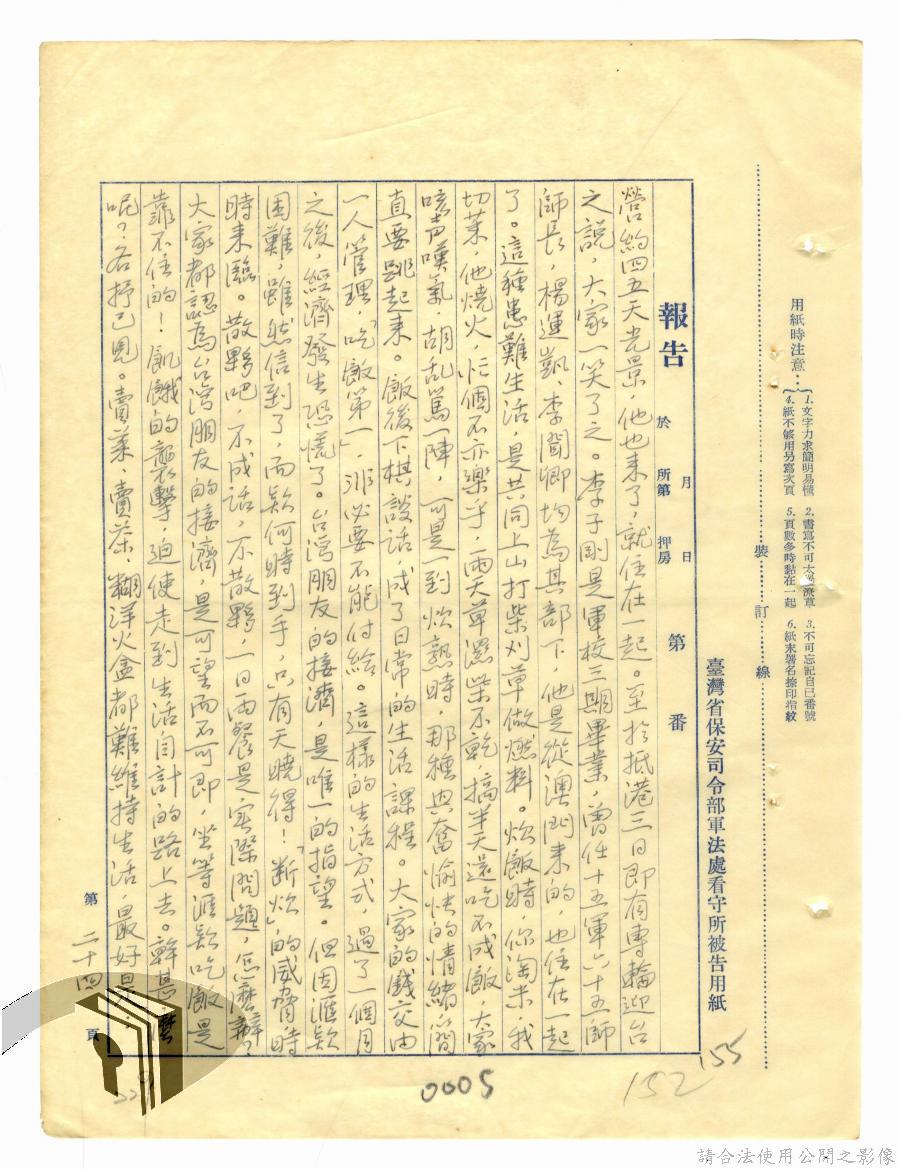 用紙時注意：
1.文字力求簡明易懂　2.書寫不可太過潦草　3.不可忘記自己番號
4.紙不够用另寫次頁　5.頁數多時黏在一起　6.紙末署名捺印指紋
裝訂線
臺灣省保安司令部軍法處看守所被告用紙
報告　於　月　日　所第　押房　第　番
營約四五天光景，他也來了，就住在一起。至於抵港三日即有專輪迎台
之說，大家一笑了之。李子剛是軍校三期畢業，曾任十五軍六十五師
師長，楊運凱、李闓卿均為其部下，他是從澳門來的，也住在一起
了。這種患難生活，是共同上山打柴刈草做燃料。炊飯時，你淘米，我
切菜，他燒火，忙個不亦樂乎，雨天草濕柴不乾，搞半天還吃不成飯，大家
唉声嘆氣，胡乱罵一陣，可是一到炊熟時，那種興奮愉快的情緒，簡
直要跳起來。飯後下棋談話，成了日常的生活課程。大家的錢交由
一人管理，「吃飯第一」，非必要不能付給。這樣的生活方式，過了一個月
之後，經濟發生恐慌了。台灣朋友的接濟，是唯一的指望。但因滙款
困難，雖然信到了，而款何時到手，只有天曉得！「断炊」的威脅時
時來臨。散夥吧，不成話，不散夥，一日两餐是实際問題，怎麼辦？
大家都認為台灣朋友的接濟，是可望而不可即，坐等滙款吃飯是
靠不住的！飢餓的襲擊，迫使走到生活自計的路上去。幹甚麼
呢？各抒己見。賣菜、賣茶、糊洋火盒都難維持生活，最好是
第二十四頁
0005
152
155
請合法使用公開之影像